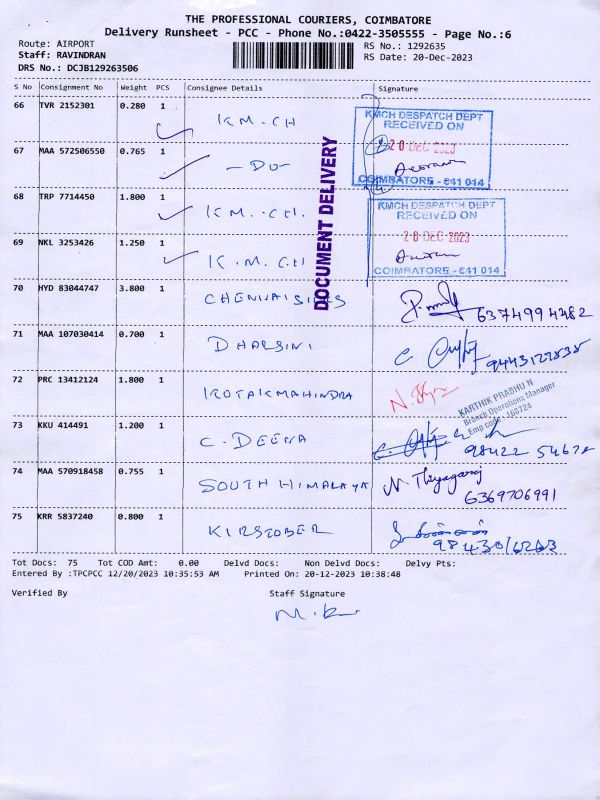 THE PROFESSIONAL COURIERS, COIMBATORE
Delivery Runsheet - PCC - Phone No.:0422-3505555 - Page No.:6
Route: AIRPORT
Staff: RAVINDRAN
DRS No.: DCJB129263506
RS No.: 1292635
RS Date: 20-Dec-2023
S No Consignment No Weight PCS Consignee Details Signature
66 TVR 2152301 0.280 1 KM.CH
KMCH DESPATCH DEPT
RECEIVED ON
20 DEC 2023
COIMBATORE - 641 014
67 MAA 572506550 0.765 1 -DO-
68 TRP 7714450 1.800 1 KM.CH.
KMCH DESPATCH DEPT
RECEIVED ON
20 DEC 2023
COIMBATORE - 641 014
69 NKL 3253426 1.250 1 K.M.CH
DOCUMENT DELIVERY
70 HYD 83044747 3.800 1 CHENNAI SILKS 6374994482
71 MAA 107030414 0.700 1 DHARSINI 9443127838
72 PRC 13412124 1.800 1 KOTAKMAHINDRA
KARTHIK PRABHU N
Branch Operations Manager
Emp code: 166724
73 KKU 414491 1.200 1 C.DEENA 98422 54678
74 MAA 570918458 0.755 1 SOUTH HIMALAYA N Thiyagaraj
6369706991
75 KRR 5837240 0.800 1 KIRSTOBER
Tot Docs: 75 Tot COD Amt: 0.00 Delvd Docs: Non Delvd Docs: Delvy Pts:
Entered By :TPCPCC 12/20/2023 10:35:53 AM Printed On: 20-12-2023 10:38:48
Verified By Staff Signature